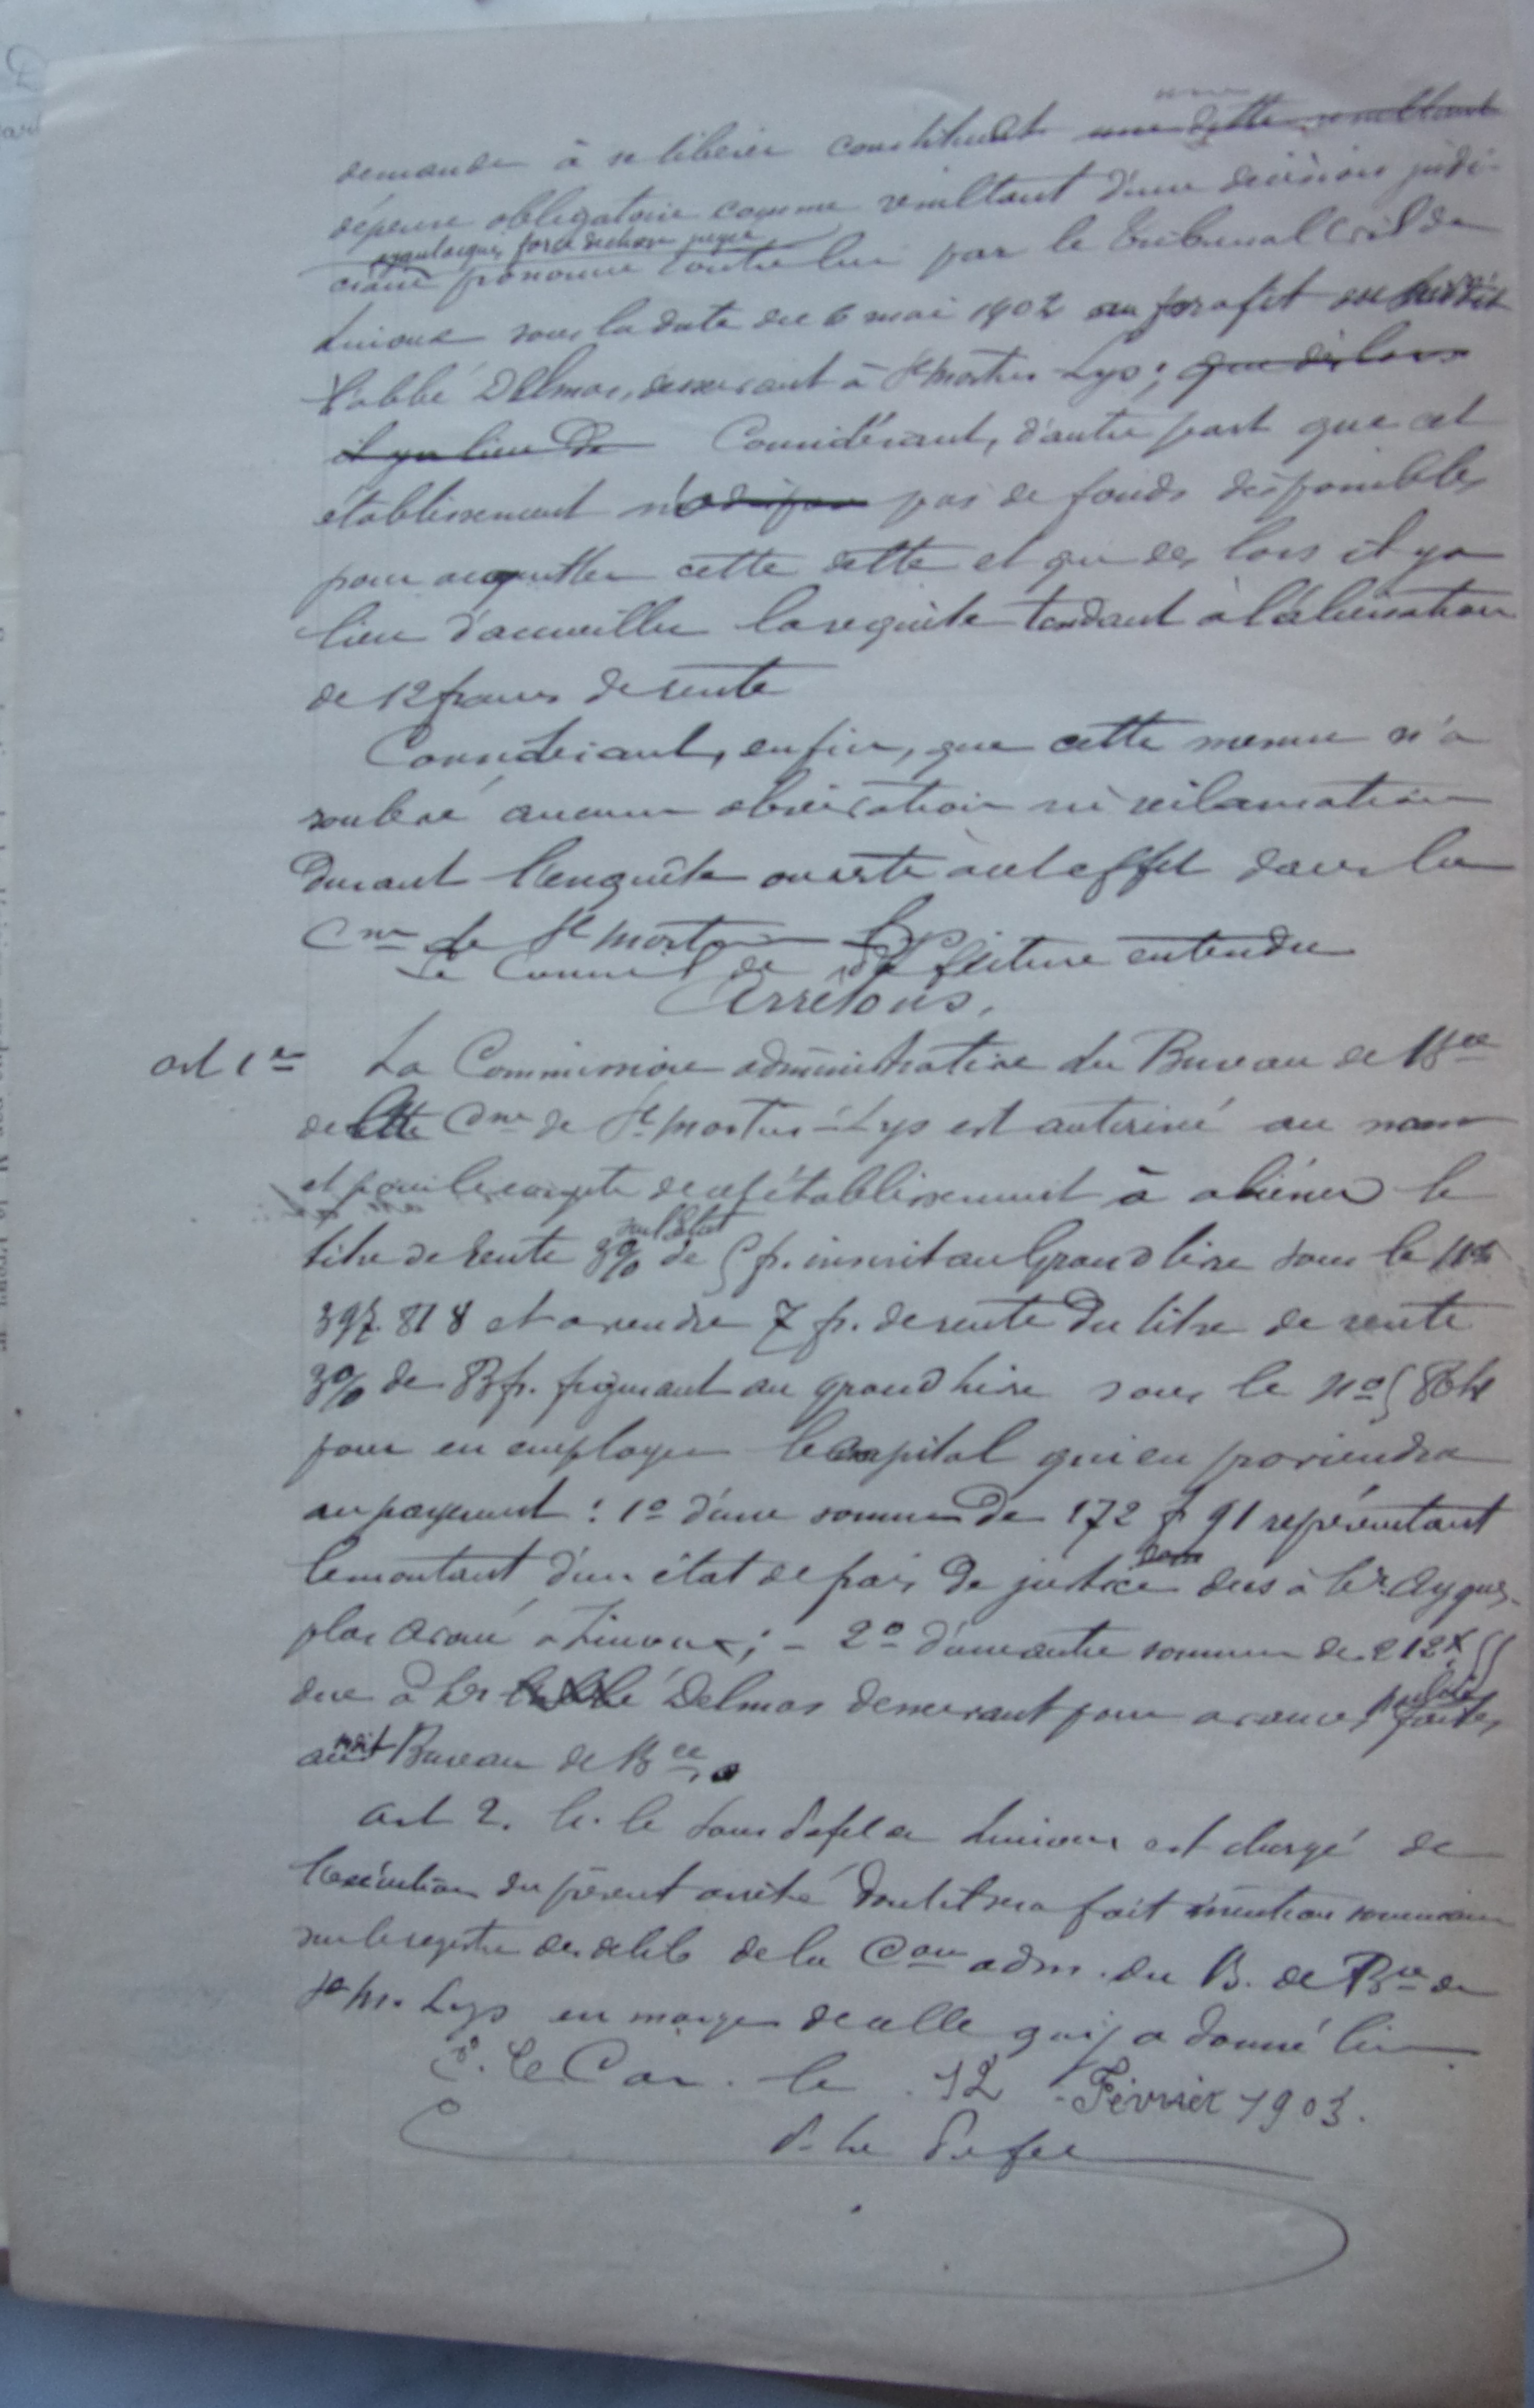 demande à se libérer constituent une dette résultant
dépense obligatoire comme résultant d'une décision judi-
ayant acquis force de chose jugée
ciaire prononcée contre lui par le tribunal civil de
Limoux sous la date du 6 mai 1902 au profit de
l'abbé Delmas, desservant à St Martin-Lys; que dès lors
il y a lieu de Considérant, d'autre part que cet
établissement n'a pas de fonds disponibles
pour acquitter cette dette et que dès lors il y a
lieu d'accueillir la requête tendant à l'aliénation
de 12 francs de rente
Considérant, enfin, que cette mesure n'a
soulevé aucune observation ni réclamation
durant l'enquête ouverte à cet effet dans la
Cne de St Martin Lys.
Le Conseil de Préfecture entendu
Arrêtons.
art 1er La Commission administrative du Bureau de Bce
de cette Cne de St Martin-Lys est autorisé au nom
et pour le compte de cet établissement à aliéner le
sur l'Etat
titre de rente 3% de 5 f. inscrit au Grand livre sous le No
397.818 et à vendre 7 f. de rente du titre de rente
3% de f. figurant au grand livre sous le No
pour en employer le capital qui en proviendra
au payement : 1o d'une somme de 172 f 91 représentant
le montant d'un état de frais de justice dus à Mr. Aygues-
plas avoué à Limoux; - 2o d'une autre somme de 212 f.
due à Mr l'abbé Delmas desservant pour avances faites
audit Bureau de Bce.
Art 2. M. le Sous Préfet de Limoux est chargé de
l'exécution du présent arrêté dont il sera fait mention sommaire
sur le registre des délib de la Con adm. du B. de Bce de
St M. Lys en marge de celle qui y a donné lieu
le 12 Février 1903.
P. Le Préfet